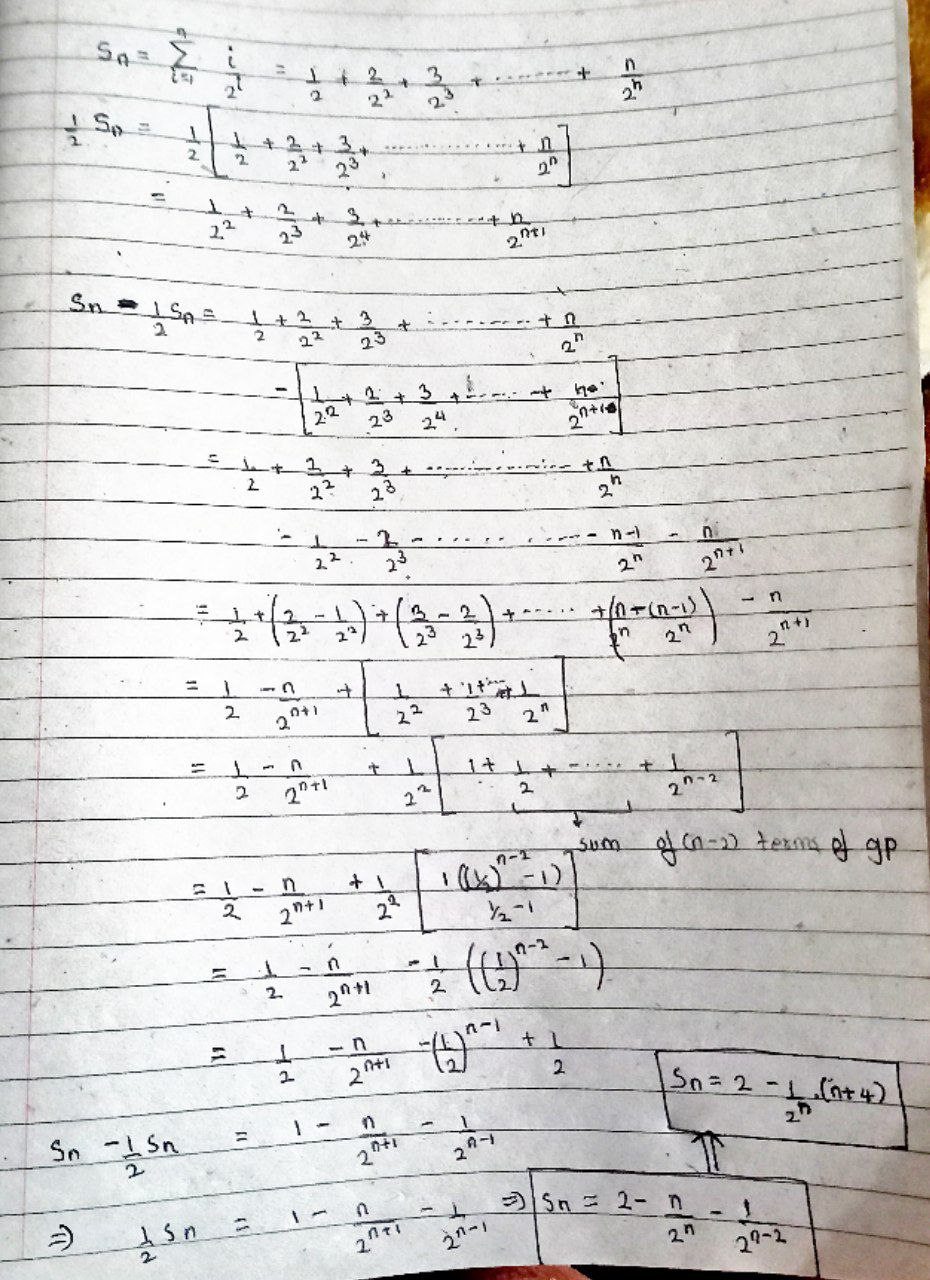 Sn = n Σ i=1 i/2^i = 1/2 + 2/2^2 + 3/2^3 + ........ + n/2^n
1/2 Sn = 1/2 [ 1/2 + 2/2^2 + 3/2^3 + ............... + n/2^n ]
= 1/2^2 + 2/2^3 + 3/2^4 + ............ + n/2^(n+1)
Sn - 1/2 Sn = 1/2 + 2/2^2 + 3/2^3 + ......... + n/2^n
- [ 1/2^2 + 2/2^3 + 3/2^4 + ...... + n/2^(n+1) ]
= 1/2 + 2/2^2 + 3/2^3 + ............... + n/2^n
- 1/2^2 - 2/2^3 - ............ - n-1/2^n - n/2^(n+1)
= 1/2 + (2/2^2 - 1/2^2) + (3/2^3 - 2/2^3) + ...... + (n/2^n - (n-1)/2^n) - n/2^(n+1)
= 1/2 - n/2^(n+1) + [ 1/2^2 + 1/2^3 + ... + 1/2^n ]
= 1/2 - n/2^(n+1) + 1/2^2 [ 1 + 1/2 + ...... + 1/2^(n-2) ]
↓ sum of (n-2) terms of gp
= 1/2 - n/2^(n+1) + 1/2^2 [ 1((1/2)^(n-2) - 1) / 1/2 - 1 ]
= 1/2 - n/2^(n+1) - 1/2 ((1/2)^(n-2) - 1)
= 1/2 - n/2^(n+1) - (1/2)^(n-1) + 1/2
Sn = 2 - 1/2^n . (n+4)
Sn - 1/2 Sn = 1 - n/2^(n+1) - 1/2^(n-1)
⇒ 1/2 Sn = 1 - n/2^(n+1) - 1/2^(n-1) ⇒ Sn = 2 - n/2^n - 1/2^(n-2)